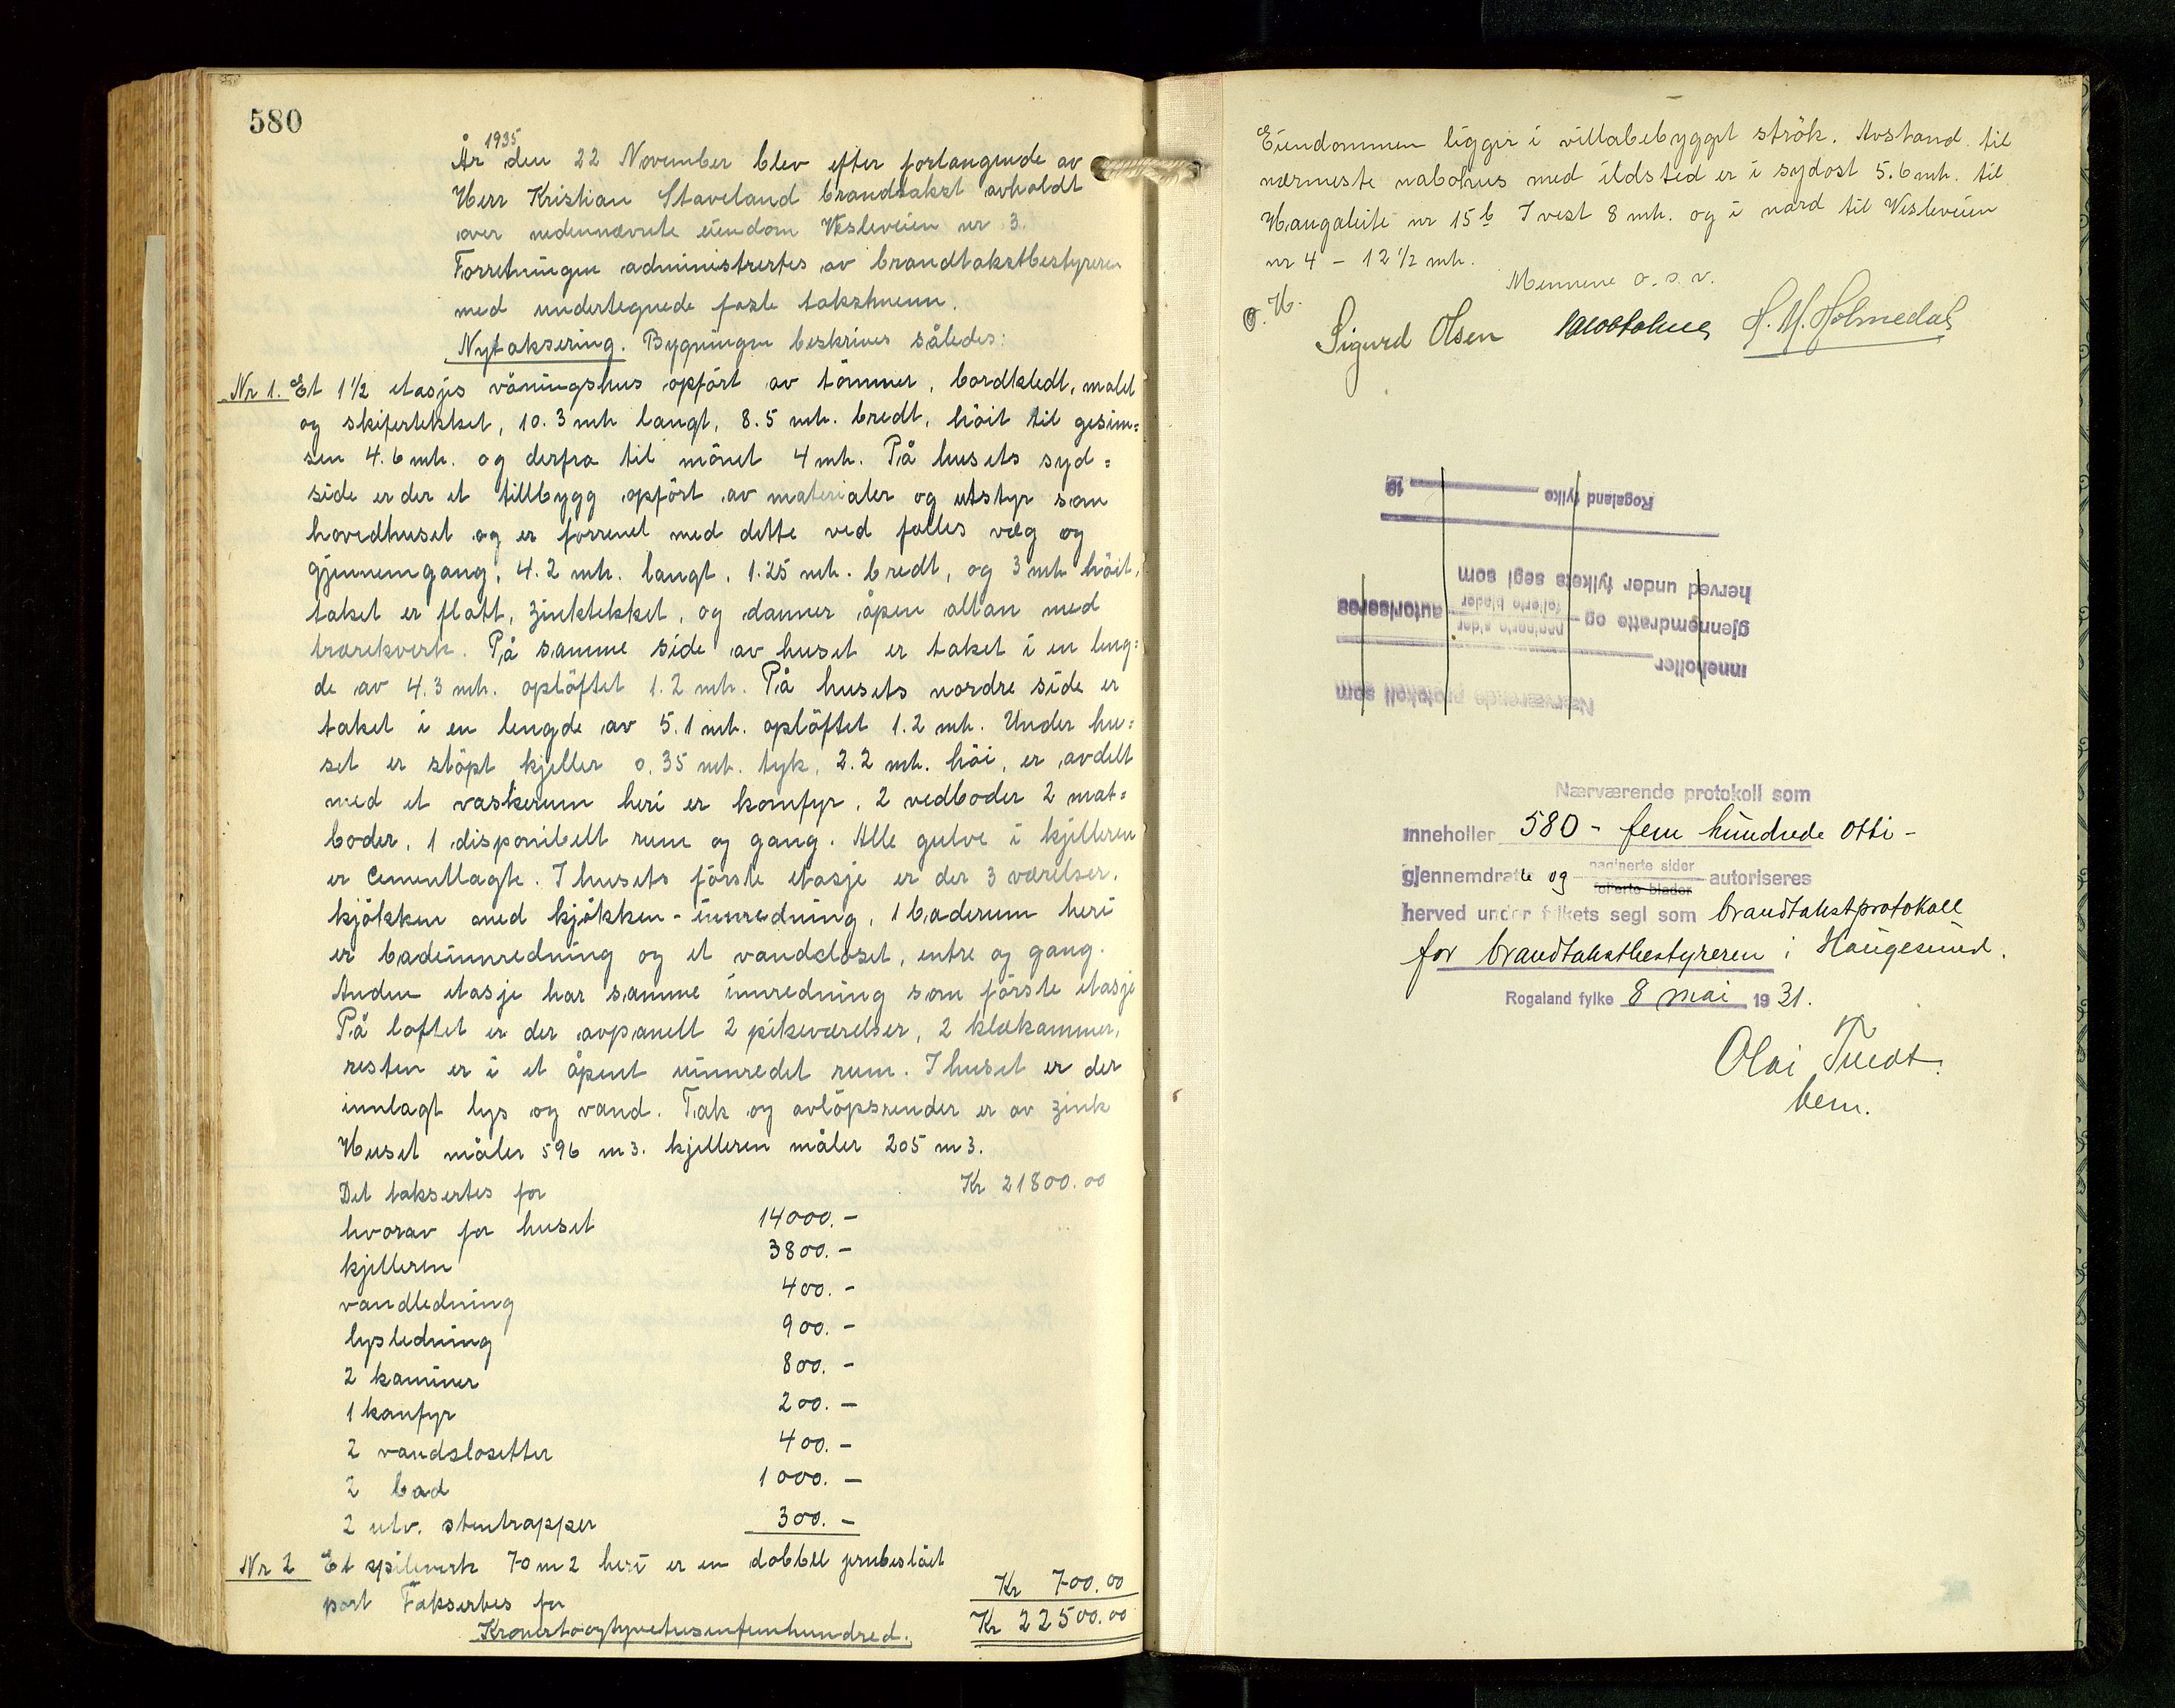 580
År 1935 den 22 November blev efter forlangende av
Herr Kristian Staveland brandtakst avholdt
over nedennævnte eiendom Visleveien nr 3.
Forretningen administrertes av brandtakstbestyreren
med undertegnede faste takstmenn.
Nytaksering. Bygningen beskrives således:
Nr 1. Et 1½ etasjes våningshus opført av tømmer, bordkledt, malet
og skifertekket, 10.3 mtr langt, 8.5 mtr. bredt, höit til gesim=
sen 4.6 mtr. og derfra til mönet 4 mtr. På husets syd=
side er der et tillbygg opført av materialer og utstyr som
hovedhuset og er forrenet med dette ved felles veg og
gjennemgang, 4.2 mtr. langt, 1.25 mtr. bredt, og 3 mtr höit,
taket er flatt, zinktekket, og danner åpen altan med
trærekverk. På samme side av huset er taket i en leng=
de av 4.3 mtr. opløftet 1.2 mtr. På husets nordre side er
taket i en lengde av 5.1 mtr. opløftet 1.2 mtr. Under hu=
set er støpt kjeller 0.35 mtr. tyk, 2.2 mtr. höi, er avdelt
med et vaskerum heri er komfyr, 2 vedboder 2 mat=
boder, 1 disponibelt rum og gang. Alle gulve i kjelleren
er Cementlagte. I husets første etasje er der 3 værelser,
kjøkken med kjøkken-innredning, 1 baderum heri
er badeinnredning og et vandcloset, entre og gang.
Anden etasje har samme innredning som første etasje
På loftet er der avpanelt 2 pikeværelser, 2 klekammer,
resten er i et åpent uinnredet rum. I huset er der
innlagt lys og vand. Tak og avløpsrender er av zink
Huset måler 596 m3. kjelleren måler 205 m3.
Det taksertes for Kr 21800.00
hvorav for huset 14000.-
kjelleren 3800.-
vandledning 400.-
lysledning 900.-
2 kaminer 800.-
1 komfyr 200.-
2 vandslosetter 400.-
2 bad 1000.-
2 utv. stentrapper 300.-
Nr 2 Et spileverk 70 m2 heri er en dobbell
port Taksertes for Kr 700.00
Kronertoogtyvetusenfemhundred. Kr 22500.00
Eiendommen ligger i villabebygget strök. Avstand til
nærmeste nabohus med ildsted er i sydost 5.6 mtr. til
Haugaleite nr 15b I vest 8 mtr. og i nord til Visleveien
nr 4 - 12½ mtr.
Mennene o.s.v.
O.H.
Sigurd Olsen H.M. Holmedal
Rogaland fylke 19
herved under fylkets segl som
gjennemdratte og paginerte sider folierte blader autoriseres
inneholler
Nærværende protokoll som
Nærværende protokoll som
inneholler 580 - fem hundrede otti -
gjennemdratte og paginerte sider folierte blader autoriseres
herved under fylkets segl som brandtakstprotokoll
for brandtakstbestyreren i Haugesund.
Rogaland fylke 8 mai 1931.
Olai
bem.